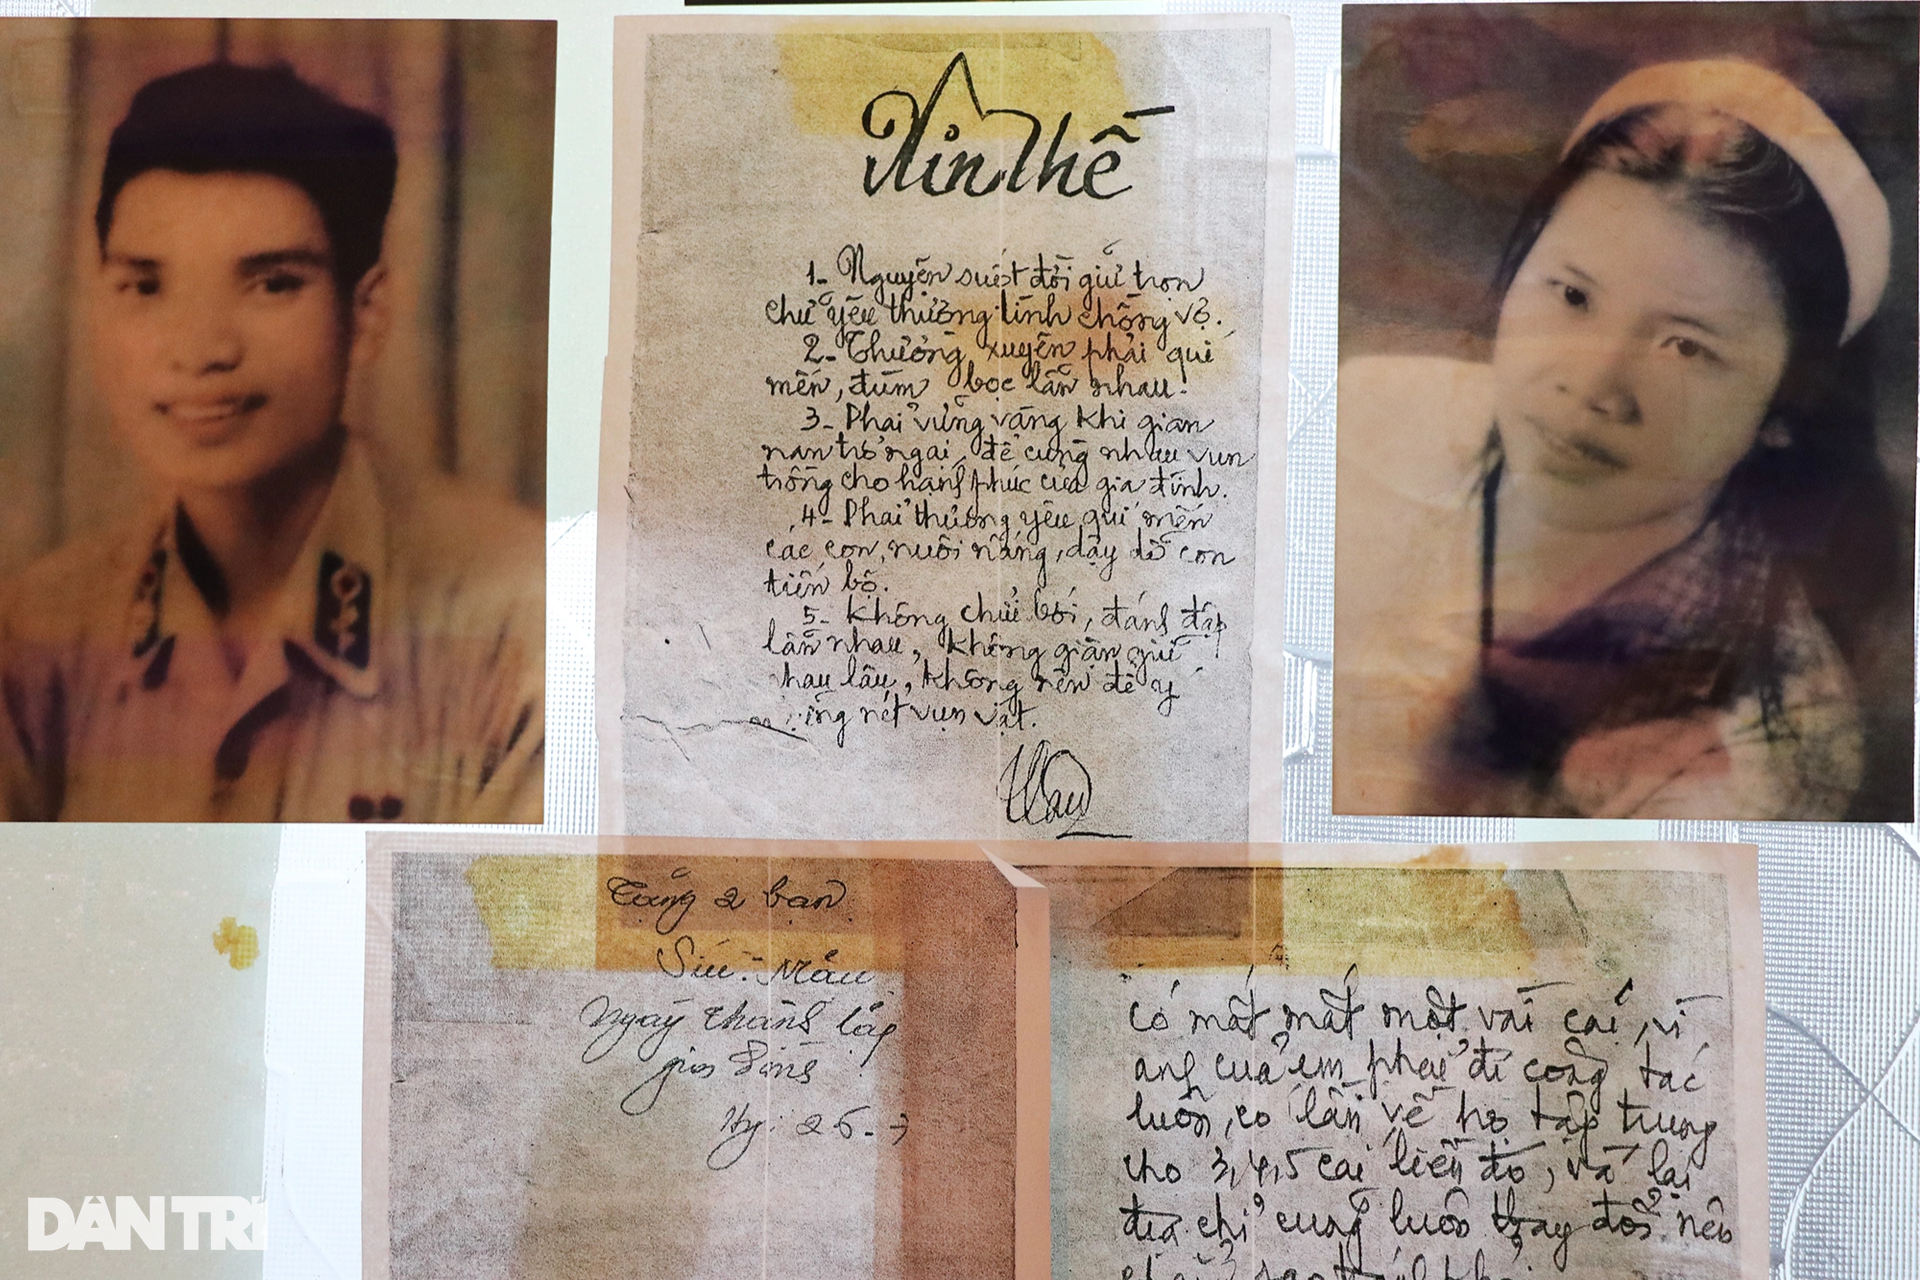 Xin Thề
1- Nguyện suốt đời giữ trọn
chữ yêu thương tình chồng vợ.
2- Thường xuyên phải quí
mến, đùm bọc lẫn nhau.
3- Phải vững vàng khi gian
nan trở ngại, để cùng nhau vun
trồng cho hạnh phúc của gia đình.
4- Phải thương yêu quí mến
các con, nuôi nấng, dậy dỗ con
tiến bộ.
5- Không chửi bới, đánh đập
lẫn nhau, không giận giữ
nhau lâu, không nên để ý
nét vụn vặt.
Tặng 2 bạn
Sửu - Mẫu
Ngày thành lập
gia đình
Ng: 26-7
có mất mát một vài cái, vì
anh của em phải đi công tác
luôn, có lần về họ tập trung
cho 3, 4, 5 cái liền đó, và lại
địa chỉ cũng luôn thay đổi nên
DÂN TRÍ